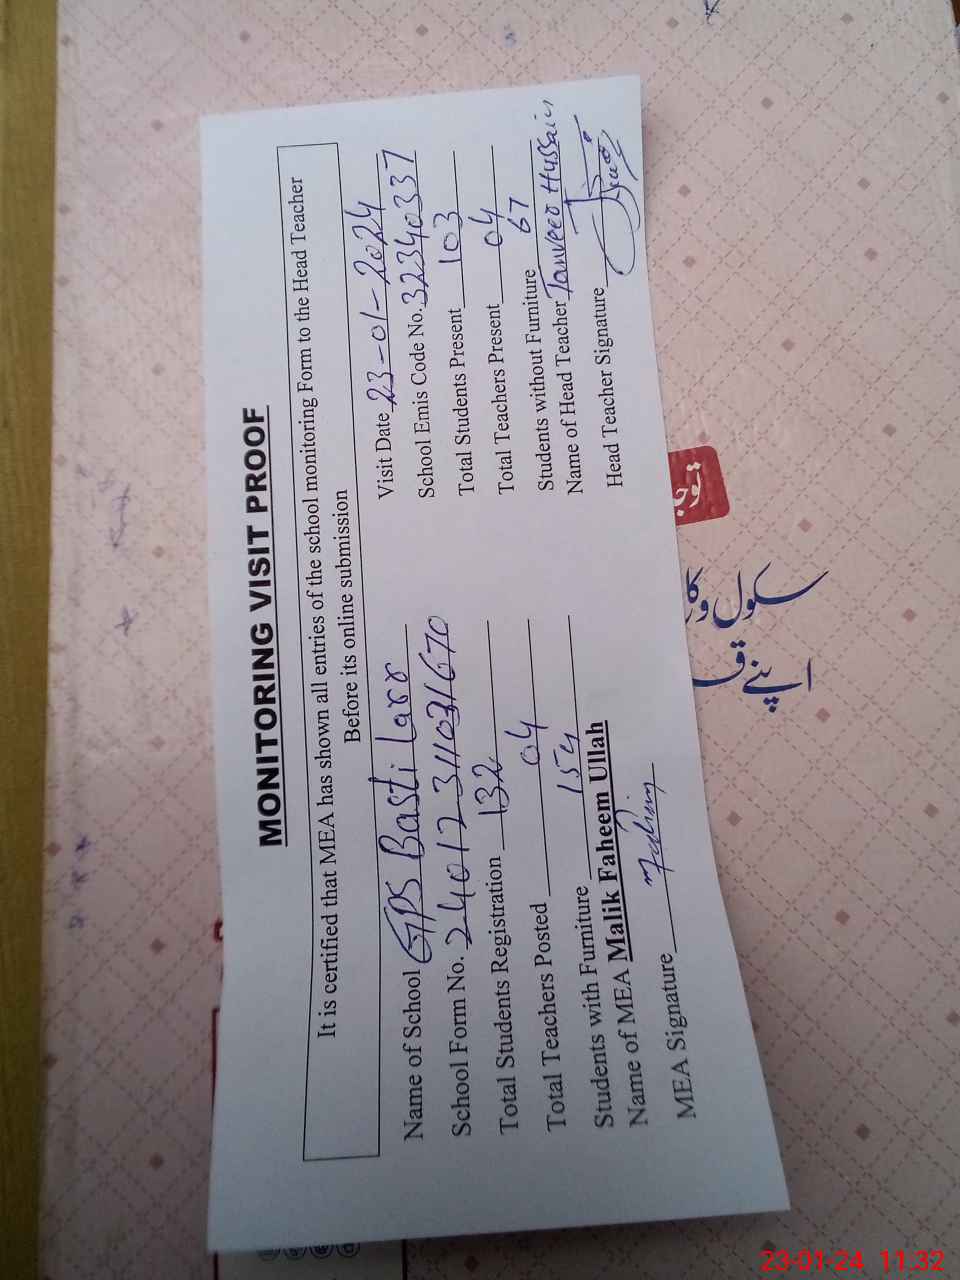 MONITORING VISIT PROOF
It is certified that MEA has shown all entries of the school monitoring Form to the Head Teacher
Before its online submission
Name of School GPS Basti Larr
Visit Date 23-01-2024
School Form No. 2401231031670
School Emis Code No. 32340337
Total Students Registration 132
Total Students Present 103
Total Teachers Posted 04
Total Teachers Present 04
Students with Furniture 154
Students without Furniture 67
Name of MEA Malik Faheem Ullah
Name of Head Teacher Tanveer Hussain
MEA Signature
Head Teacher Signature
سکول
اپنے
23-01-24 11:32